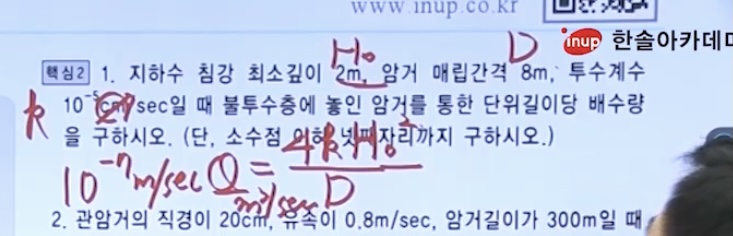 www.inup.co.kr
inup 한솔아카데미
H₀ D
핵심2 1. 지하수 침강 최소깊이 2m, 암거 매립간격 8m, 투수계수
k 10⁻⁵cm/sec일 때 불투수층에 놓인 암거를 통한 단위길이당 배수량
을 구하시오. (단, 소수점 이하 넷째자리까지 구하시오.)
10⁻⁷m/sec Q = 4kH₀² / D
m³/sec
2. 관암거의 직경이 20cm, 유속이 0.8m/sec, 암거길이가 300m일 때